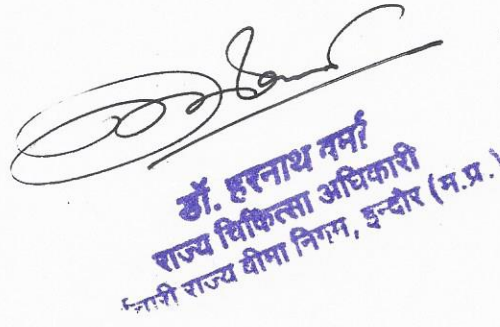 डॉ. हरनाथ वर्मा
राज्य चिकित्सा अधिकारी
राज्य बीमा निगम, इन्दौर (म.प्र.)